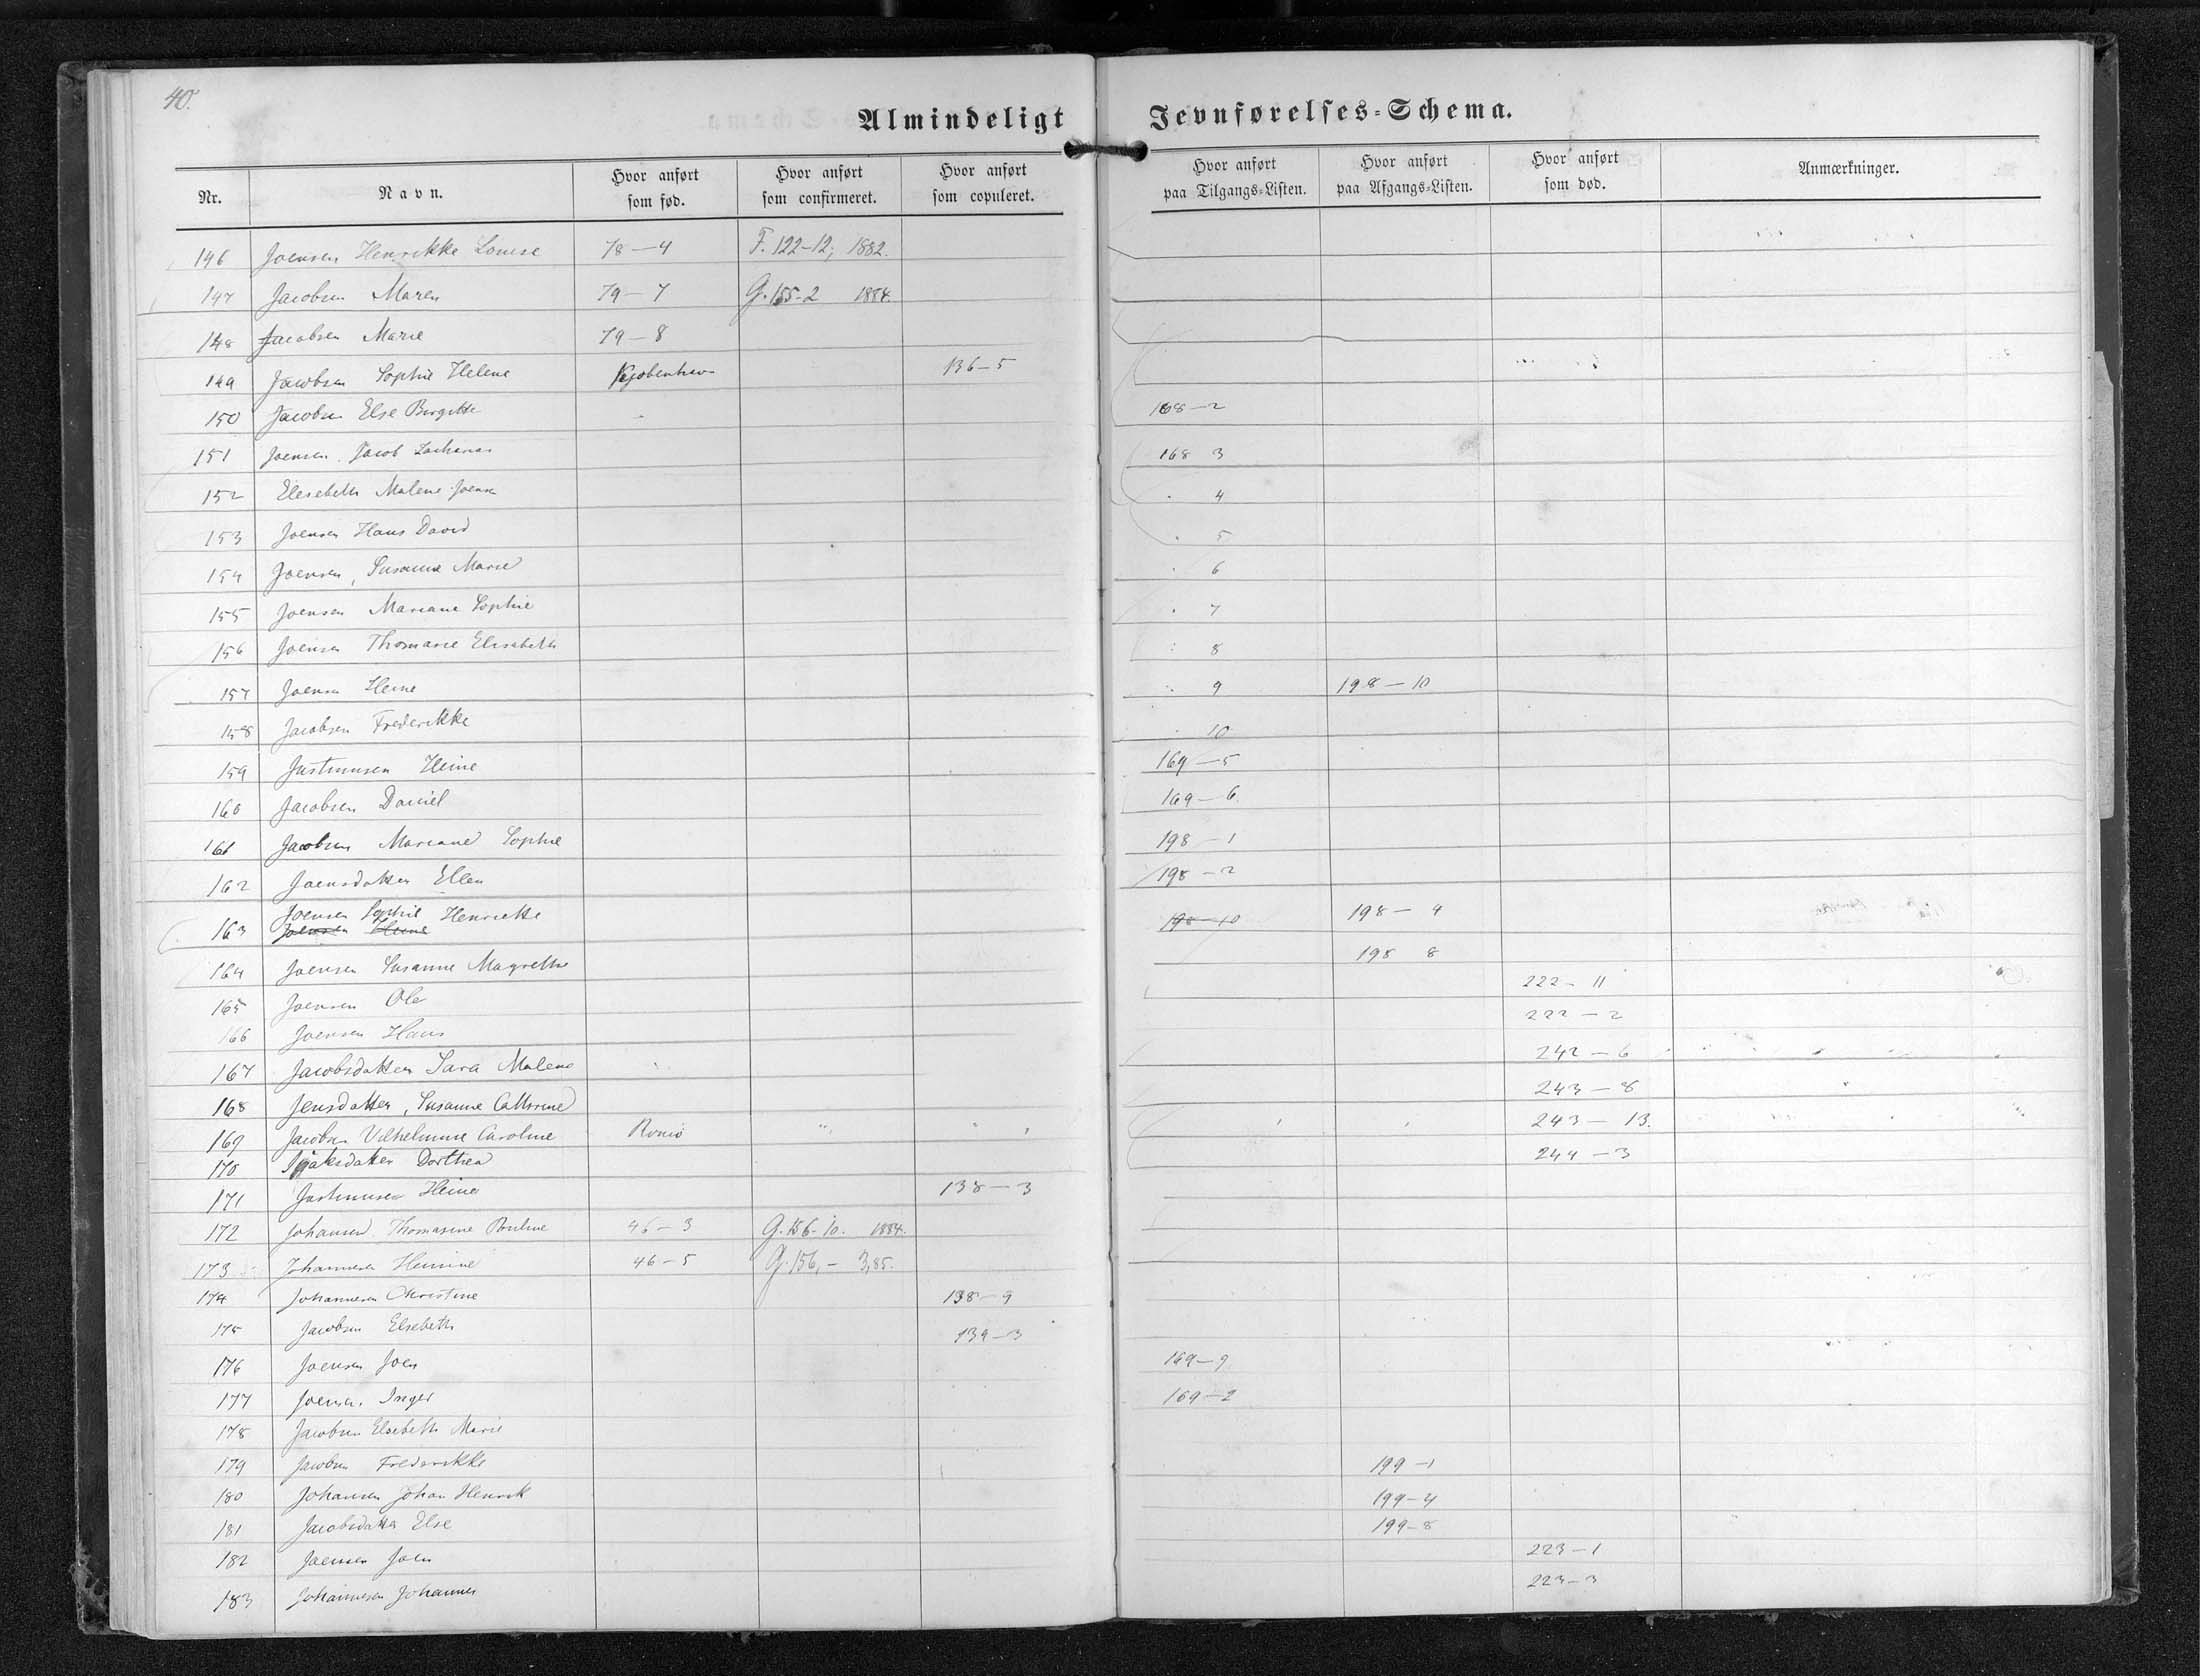 40.
Almindeligt Jevnførelses-Schema.
Nr. Navn. Hvor anført som fød. Hvor anført som confirmeret. Hvor anført som copuleret. Hvor anført paa Tilgangs-Listen. Hvor anført paa Afgangs-Listen. Hvor anført som død. Anmærkninger.
146 Joensen Henrikke Louise 78-4 F. 122-12, 1882.
147 Jacobsen Maren 79-7 G. 155-2 1884.
148 Jacobsen Marie 79-8
149 Jacobsen Sophie Helene Kjøbenhavn 136-5
150 Jacobsen Else Birgitte 168-2
151 Joensen Jacob Zacharias 168 3
152 Elesebeth Malene Joensen 4
153 Joensen Hans David 5
154 Joensen, Susanne Marie 6
155 Joensen Mariane Sophie 7
156 Joensen Thomasie Elisabeth 8
157 Joensen Heine 9 198-10
158 Jacobsen Frederikke 10
159 Justinusen Heine 169-5
160 Jacobsen Daniel 169-6.
161 Jacobsen Mariane Sophie 198-1
162 Joensdatter Ellen 198-2
163 Joensen Sophie Henriette 198-10 198-4
Joensen Heine
164 Joensen Susanne Magrethe 198 8
165 Joensen Ole 222-11
166 Joensen Hans 222-2
167 Jacobsdatter Sara Malene 242-6
168 Jensdatter, Susanne Cathrine 243-8
169 Jacobsen Vilhelmine Caroline 243-13.
170 Isaksdatter Dorthea 244-3
171 Justinusen Heine 138-3
172 Johansen Thomasine Pouline 46-3 G. 156-10. 1884.
173 Johannesen Heinine 46-5 G. 156,- 3,85.
174 Johannesen Christine 138-9
175 Jacobsen Elsebeth 139-3
176 Joensen Joen 169-9
177 Joensen Inger 169-2
178 Jacobsen Elsebeth Marie
179 Jacobsen Frederikke 199-1
180 Johansen Johan Henrik 199-4
181 Jacobsdatter Else 199-8
182 Joensen Joen 223-1
183 Johannesen Johannes 223-3